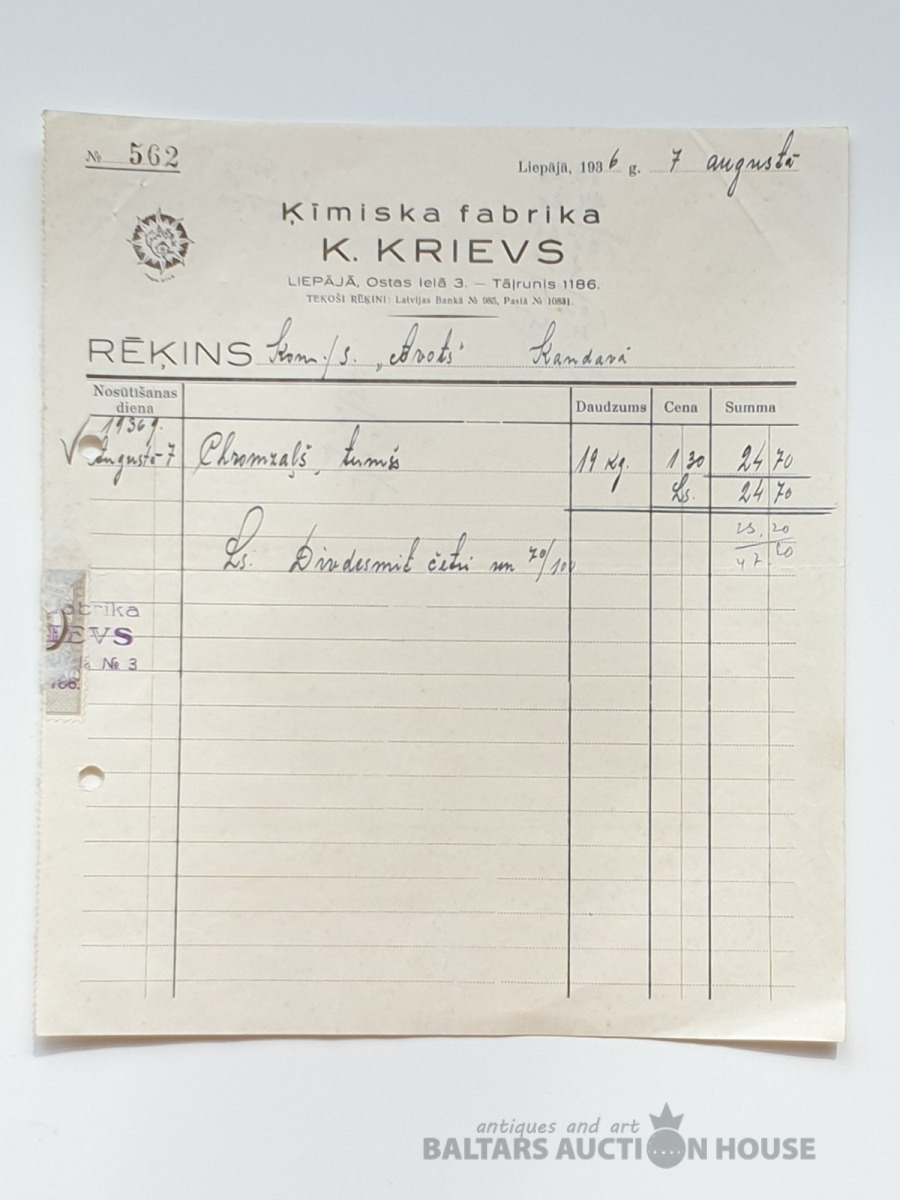 № 562
Liepājā, 1936 g. 7 augustā
Ķīmiska fabrika
K. KRIEVS
LIEPĀJĀ, Ostas ielā 3. — Tāļrunis 1186.
TEKOŠI RĒĶINI: Latvijas Bankā № 985, Pastā № 10831.
RĒĶINS Kom./s. „Avots“ Kandavā
Nosūtīšanas diena Daudzums Cena Summa
1936 g.
Augustā 7 Chromzaļš, tumšs 19 kg. 1 30 24 70
Ls. 24 70
Ls. Divdesmit četri un 70/100
abrika
IEVS
№ 3
antiques and art
BALTARS AUCTION HOUSE